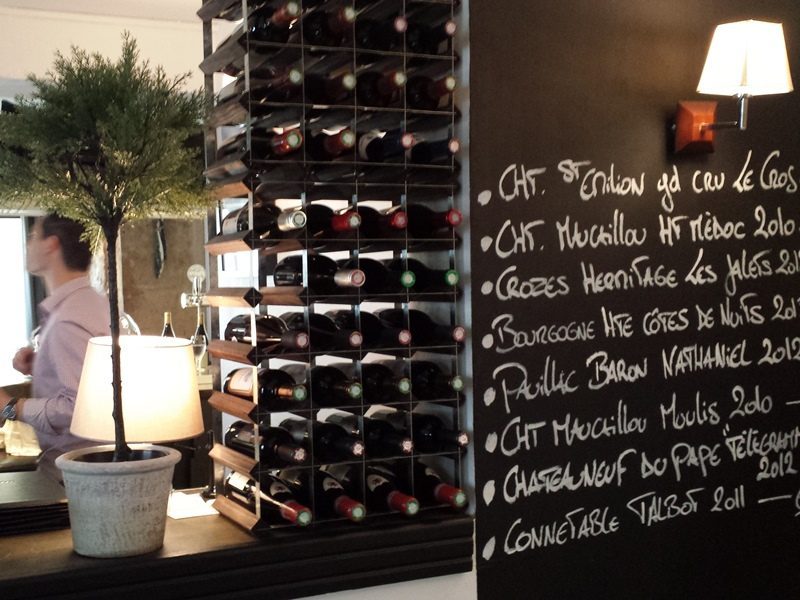 • CHT. ST EMILION gd CRU LE CROS
• CHT. MAUCAILLOU HT MÉDOC 2010
• CROZES HERMITAGE LES JALETS
• BOURGOGNE HTE CÔTES DE NUITS
• PAUILLAC BARON NATHANIEL 2012
• CHT MAUCAILLOU MOULIS 2010 —
• CHATEAUNEUF DU PAPE "TÉLEGRAMM
2012
• CONNETABLE TALBOT 2011 —